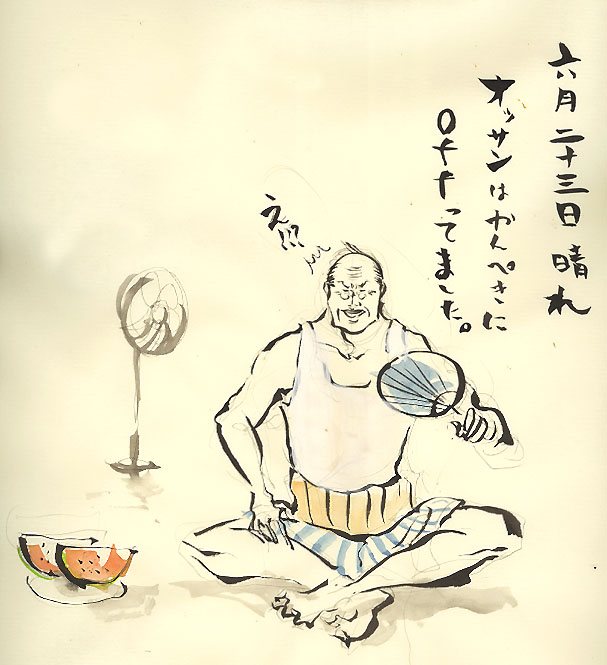 六月二十三日 晴れ
オッサンはかんぺきに
Offってました。
え!!!